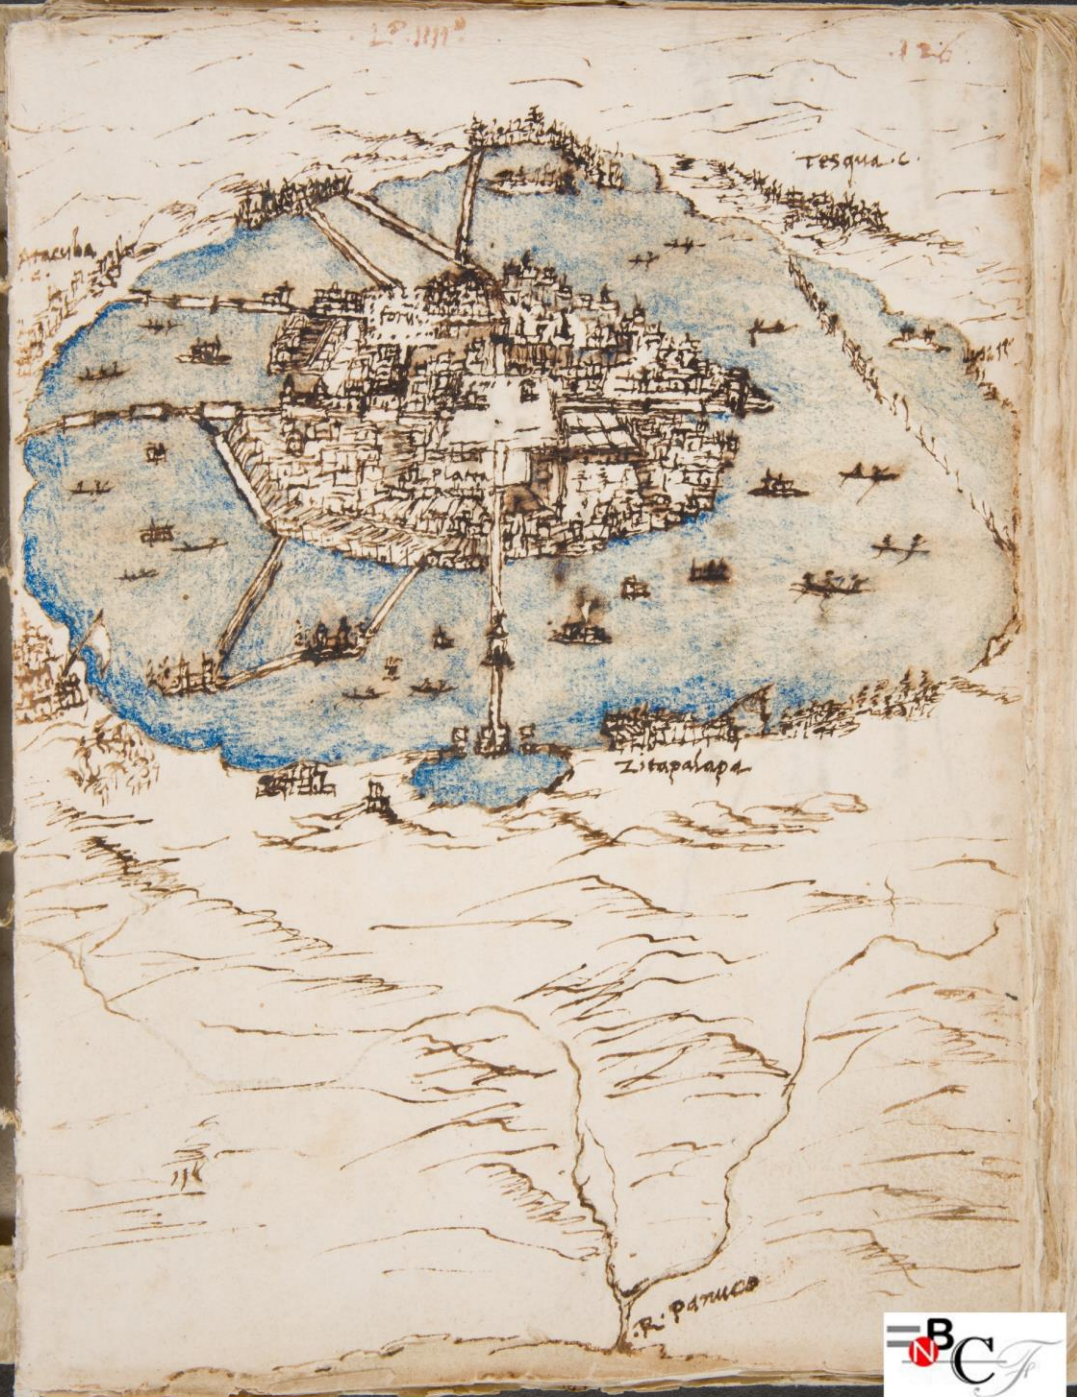 Lº. IIIIº
.126.
Tesqua.c.
Atacuba
foru
Plaza
Zitapalapa
.R. Panuco
BNCF